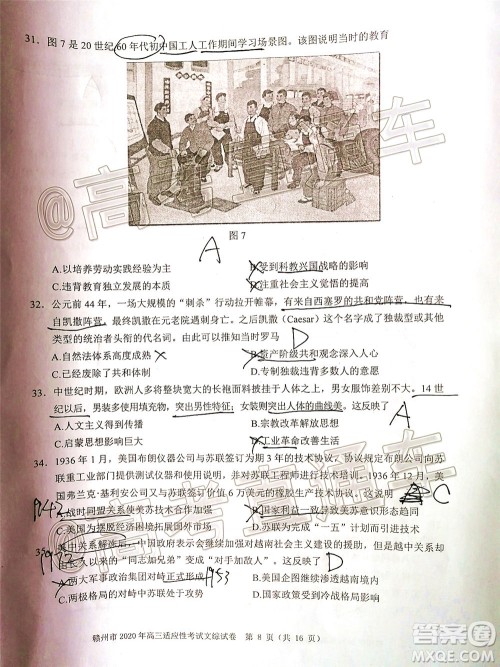 31. 图 7 是 20 世纪 60 年代初中国工人工作期间学习场景图。该图说明当时的教育
图 7
A
A.以培养劳动实践经验为主 B.受到科教兴国战略的影响
C.违背教育独立发展的本质 D.注重社会主义觉悟的提高
32. 公元前 44 年，一场大规模的“刺杀”行动拉开帷幕，有来自西塞罗的共和党阵营，也有来
自凯撒阵营。最终凯撒在元老院遇刺身亡。之后凯撒（Caesar）这个名字成了独裁型或其他
类型的统治者头衔的代名词。由此可推断当时罗马 D
A.自然法体系高度成熟 B.资产阶级共和观念深入人心
C.违背政治制衡传统 D.专制倾向影响深远
33. 中世纪时期，欧洲人多将整块宽大的长袍面料披挂于人体之上，男女服饰差别不大。14 世
纪以后，男装多为短装，突出男性特征；女装则突出人体的曲线美。这反映了 A
A.人文主义得到传播 B.宗教改革影响深入
C.启蒙思想影响巨大 D.工业革命改善生活
34. 1936 年 1 月，美国布朗仪器公司与苏联签订为期 3 年的技术协议。协议规定布朗公司向苏
联重工业部门提供测试仪器和使用技术，并对苏联工程师进行技术培训。1936 年 12 月，美
国弗兰克·基利安公司又与苏联签订价值 6 万美元的橡胶生产技术协议。这说明 C
1942
A.战时同盟关系使美苏技术合作加强 B.国家利益一致导致美苏意识形态对立
C.美国为摆脱经济困境开拓国外市场 D.苏联为完成“一五”计划寻求国际合作
美中关系解冻后，中国政府表示会继续加强对越南社会主义建设的援助，但是越中关系却
由长久以来的“同志加兄弟”变成“对手加敌人”。这反映了 D
A.两大军事政治集团对峙正式形成 1953 B.美国企图继续渗透越南
C.苏联解体影响越南政局 D.世界格局出现新的变化
赣州市 2020 年高三适应性考试文综试卷 第 8 页（共 16 页）
@高考直通车
@高考直通车